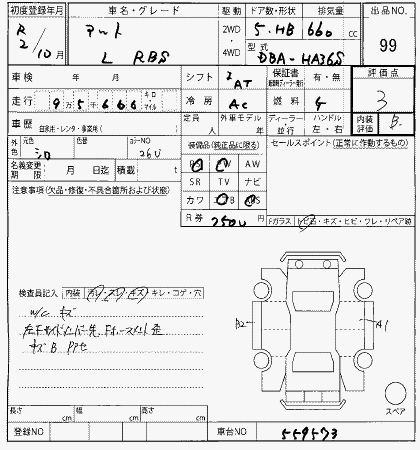 初度登録年月 車名・グレード 駆動 ドア数・形状 排気量 出品番号
R 2/10月 アルト L RBS 2WD・4WD 5・HB 660 cc 99
型式 DBA-HA36S
車検 年 月 シフト AT 保証書 有・無 評価点
走行 9万5千666 キロ・マイル 冷房 AC 燃料 3
車歴 自家用・レンタ・事業用( ) 定員 人 外車モデル 年 ディーラー・並行 ハンドル 左・右 内装評価 B
外色 元色 シロ 色替 カラーNO 26U 装備品(純正品に限る) セールスポイント(正常に作動するもの)
名義変更期限 月 日迄 積載 t PS PW AW
注意事項(欠品・修復・不具合箇所および状態) SR TV ナビ
カワ ABS
R券 Fガラス トビ石・キズ・ヒビ・ワレ・リペア跡
検査員記入 内装 汚レ・スレ・キズ・キレ・コゲ・穴
W/C キズ
キズ B
A2 A1
スペア
長さ cm 幅 cm 高さ cm
登録NO 車台NO 559573